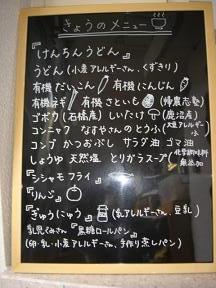 きょうのメニュー
『けんちんうどん』
うどん(小麦アレルギーさん、くずきり)
有機だいこん 有機にんじん
有機ネギ 有機さといも (帰農志塾)
ゴボウ(石橋産) しいたけ (鹿沼産)
コンニャク なすやさんのとうふ(大豆アレルギー
コンブ かつおぶし サラダ油 ゴマ油
しょうゆ 天然塩 とりがらスープ(化学調味料
無添加
『シシャモフライ』
『りんご』
『ぎゅうにゅう』 (乳アレルギーさん、豆乳)
乳児くみさん『黒糖ロールパン』
(卵・乳・小麦アレルギーさん、手作り蒸しパン)